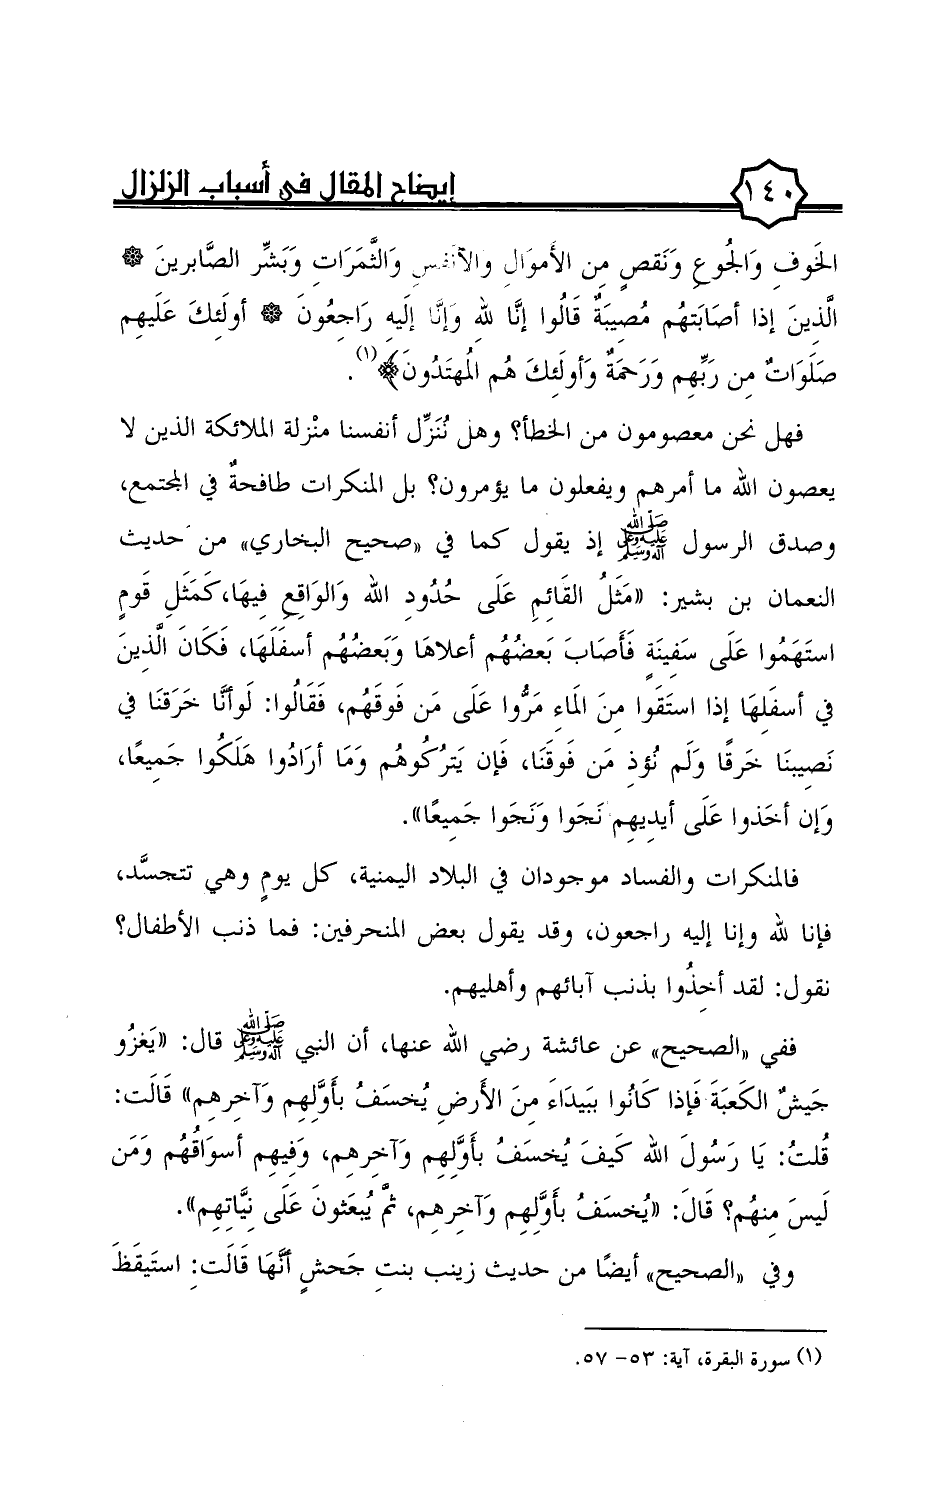 ١٤٠ إيضاح المقال في أسباب الزلزال
الخَوفِ وَالجُوعِ وَنَقصٍ مِن الأموَالِ والأنفسِ وَالثَّمَرَاتِ وَبَشِّر الصَّابرينَ ۞
الَّذينَ إذا أصَابَتهُم مُصِيبَةٌ قَالُوا إنَّا للهِ وَإنَّا إلَيهِ رَاجِعُونَ ۞ أولَئكَ عَلَيهِم
صَلَوَاتٌ مِن رَبِّهِم وَرَحمَةٌ وَأولَئكَ هُم المُهتَدُونَ﴾(١).
فهل نحن معصومون من الخطأ؟ وهل نُنَزِّل أنفسنا منْزلة الملائكة الذين لا
يعصون الله ما أمرهم ويفعلون ما يؤمرون؟ بل المنكرات طافحةٌ في المجتمع،
وصدق الرسول ﷺ إذ يقول كما في «صحيح البخاري» من حديث
النعمان بن بشير: «مَثَلُ القَائِمِ عَلَى حُدُودِ الله وَالوَاقِعِ فِيهَا،كَمَثَلِ قَومٍ
استَهَمُوا عَلَى سَفينَةٍ فَأَصَابَ بَعضُهُم أعلاهَا وَبَعضُهُم أسفَلَهَا، فَكَانَ الَّذينَ
في أسفَلِهَا إذا استَقَوا مِنَ المَاءِ مَرُّوا عَلَى مَن فَوقَهُم، فَقَالُوا: لَوأنَّا خَرَقنَا في
نَصِيبنَا خَرقًا وَلَم نُؤذِ مَن فَوقَنَا، فَإن يَترُكُوهُم وَمَا أرَادُوا هَلَكُوا جَميعًا،
وَإن أخَذوا عَلَى أيدِيهِم نَجَوا وَنَجَوا جَميعًا».
فالمنكرات والفساد موجودان في البلاد اليمنية، كل يومٍ وهي تتجسَّد،
فإنا لله وإنا إليه راجعون، وقد يقول بعض المنحرفين: فما ذنب الأطفال؟
نقول: لقد أخِذُوا بذنب آبائهم وأهليهم.
ففي «الصحيح» عن عائشة رضي الله عنها، أن النبي ﷺ قال: «يَغزُو
جَيشٌ الكَعبَةَ فَإذا كَانُوا ببَيدَاءَ مِنَ الأرضِ يُخسَفُ بأَوَّلِهِم وَآخِرهِم» قَالَت:
قُلتُ: يَا رَسُولَ الله كَيفَ يُخسَفُ بأَوَّلِهِم وَآخِرِهِم، وَفِيهِم أسوَاقُهُم وَمَن
لَيسَ مِنهُم؟ قَالَ: «يُخسَفُ بأَوَّلِهِم وَآخِرِهِم، ثمَّ يُبعَثونَ عَلَى نِيَّاتِهِم».
وفي «الصحيح» أيضًا من حديث زينب بنتِ جَحشٍ أنَّهَا قَالَت: استَيقَظَ
(١) سورة البقرة، آية: ٥٣- ٥٧.